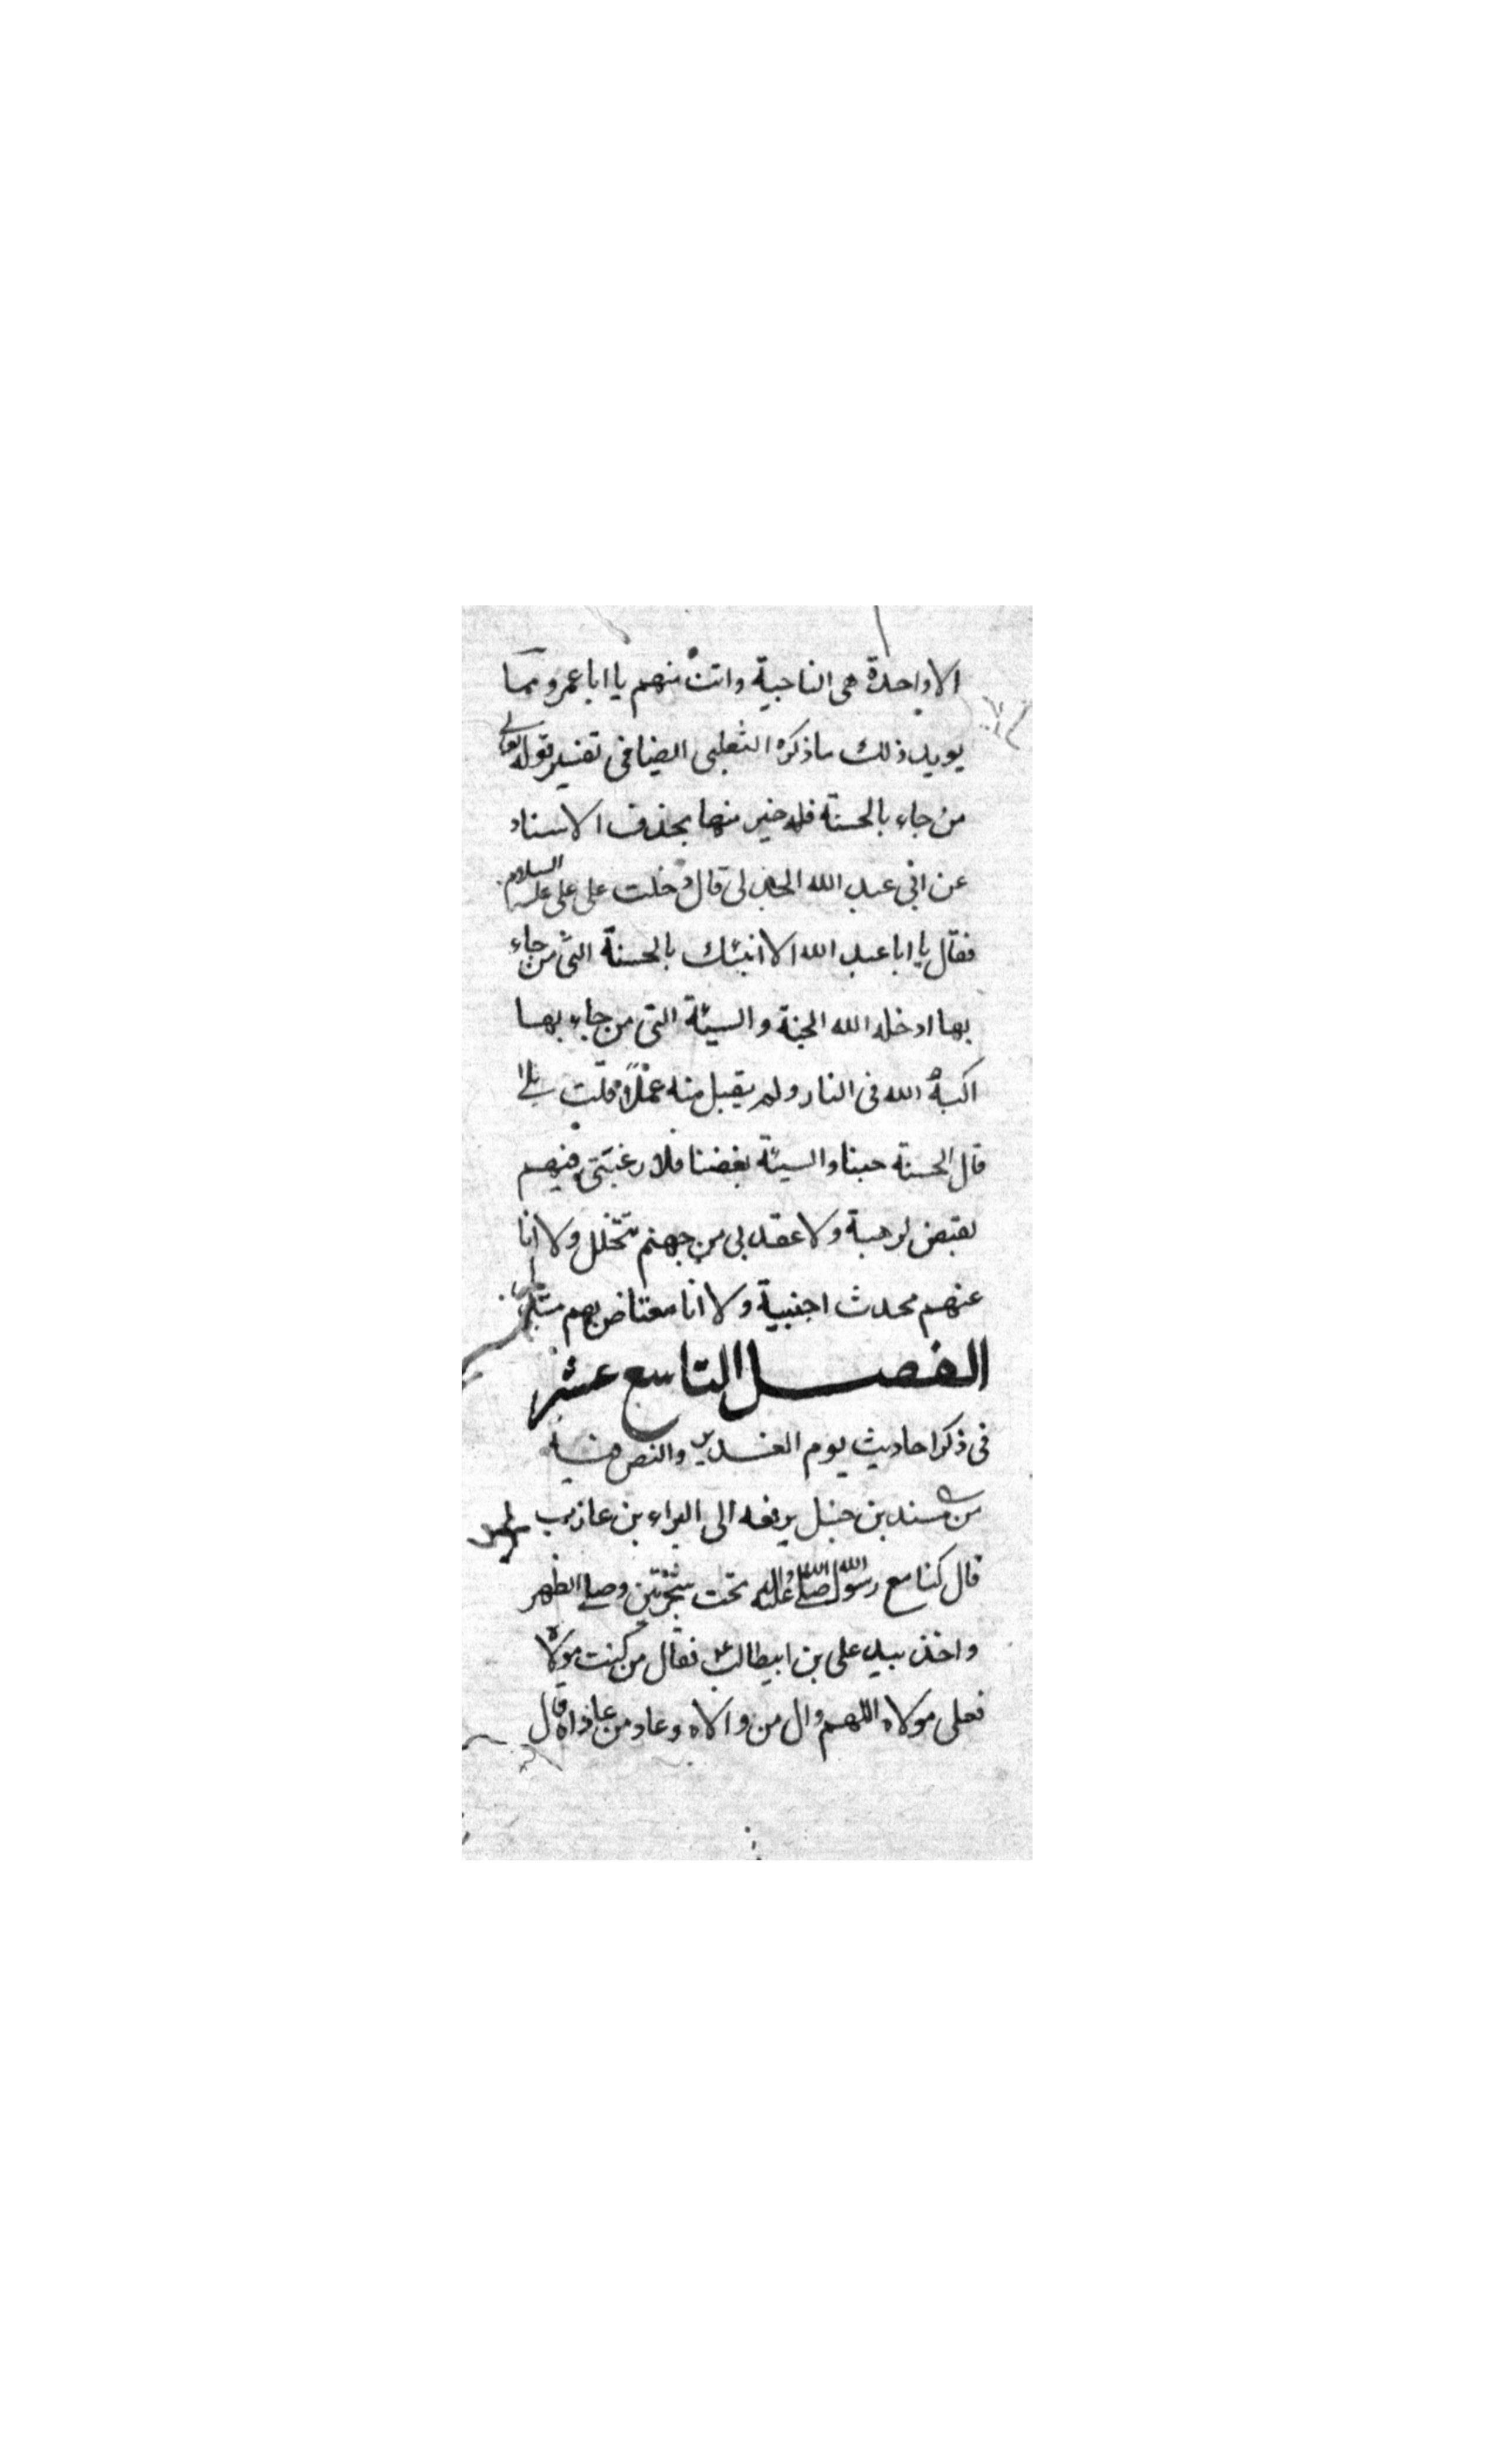 الاواحدة هى الناجية وانت منهم يا ابا عمرو ومما
يويد ذلك ماذكره الثعلبى ايضا فى تفسير قوله تعالى
من جاء بالحسنة فله خير منها بحذف الاسناد
عن ابى عبد الله الجدلى قال دخلت على على عليه السلام
فقال يا ابا عبد الله الا انبئك بالحسنة التى من جاء
بها ادخله الله الجنة والسيئة التى من جاء بها
اكبه الله فى النار ولم يقبل منه عملاً قلت بلى
قال الحسنة حبنا والسيئة بغضنا فلا رغبتى فيهم
لرهبة ولا عقد لى من جهنم بتخلل ولا انا
عنهم محدث اجنبية ولا انا معتاض بهم
الفصل التاسع عشر
فى ذكر احاديث يوم الغدير والنص فيه
من مسند بن حنبل يرفعه الى البراء بن عازب
قال كنا مع رسول الله صلى الله عليه تحت شجرتين وصلى الظهر
واخذ بيد على بن ابيطالب فقال من كنت مولاه
فعلى مولاه اللهم وال من والاه وعاد من عاداه قال